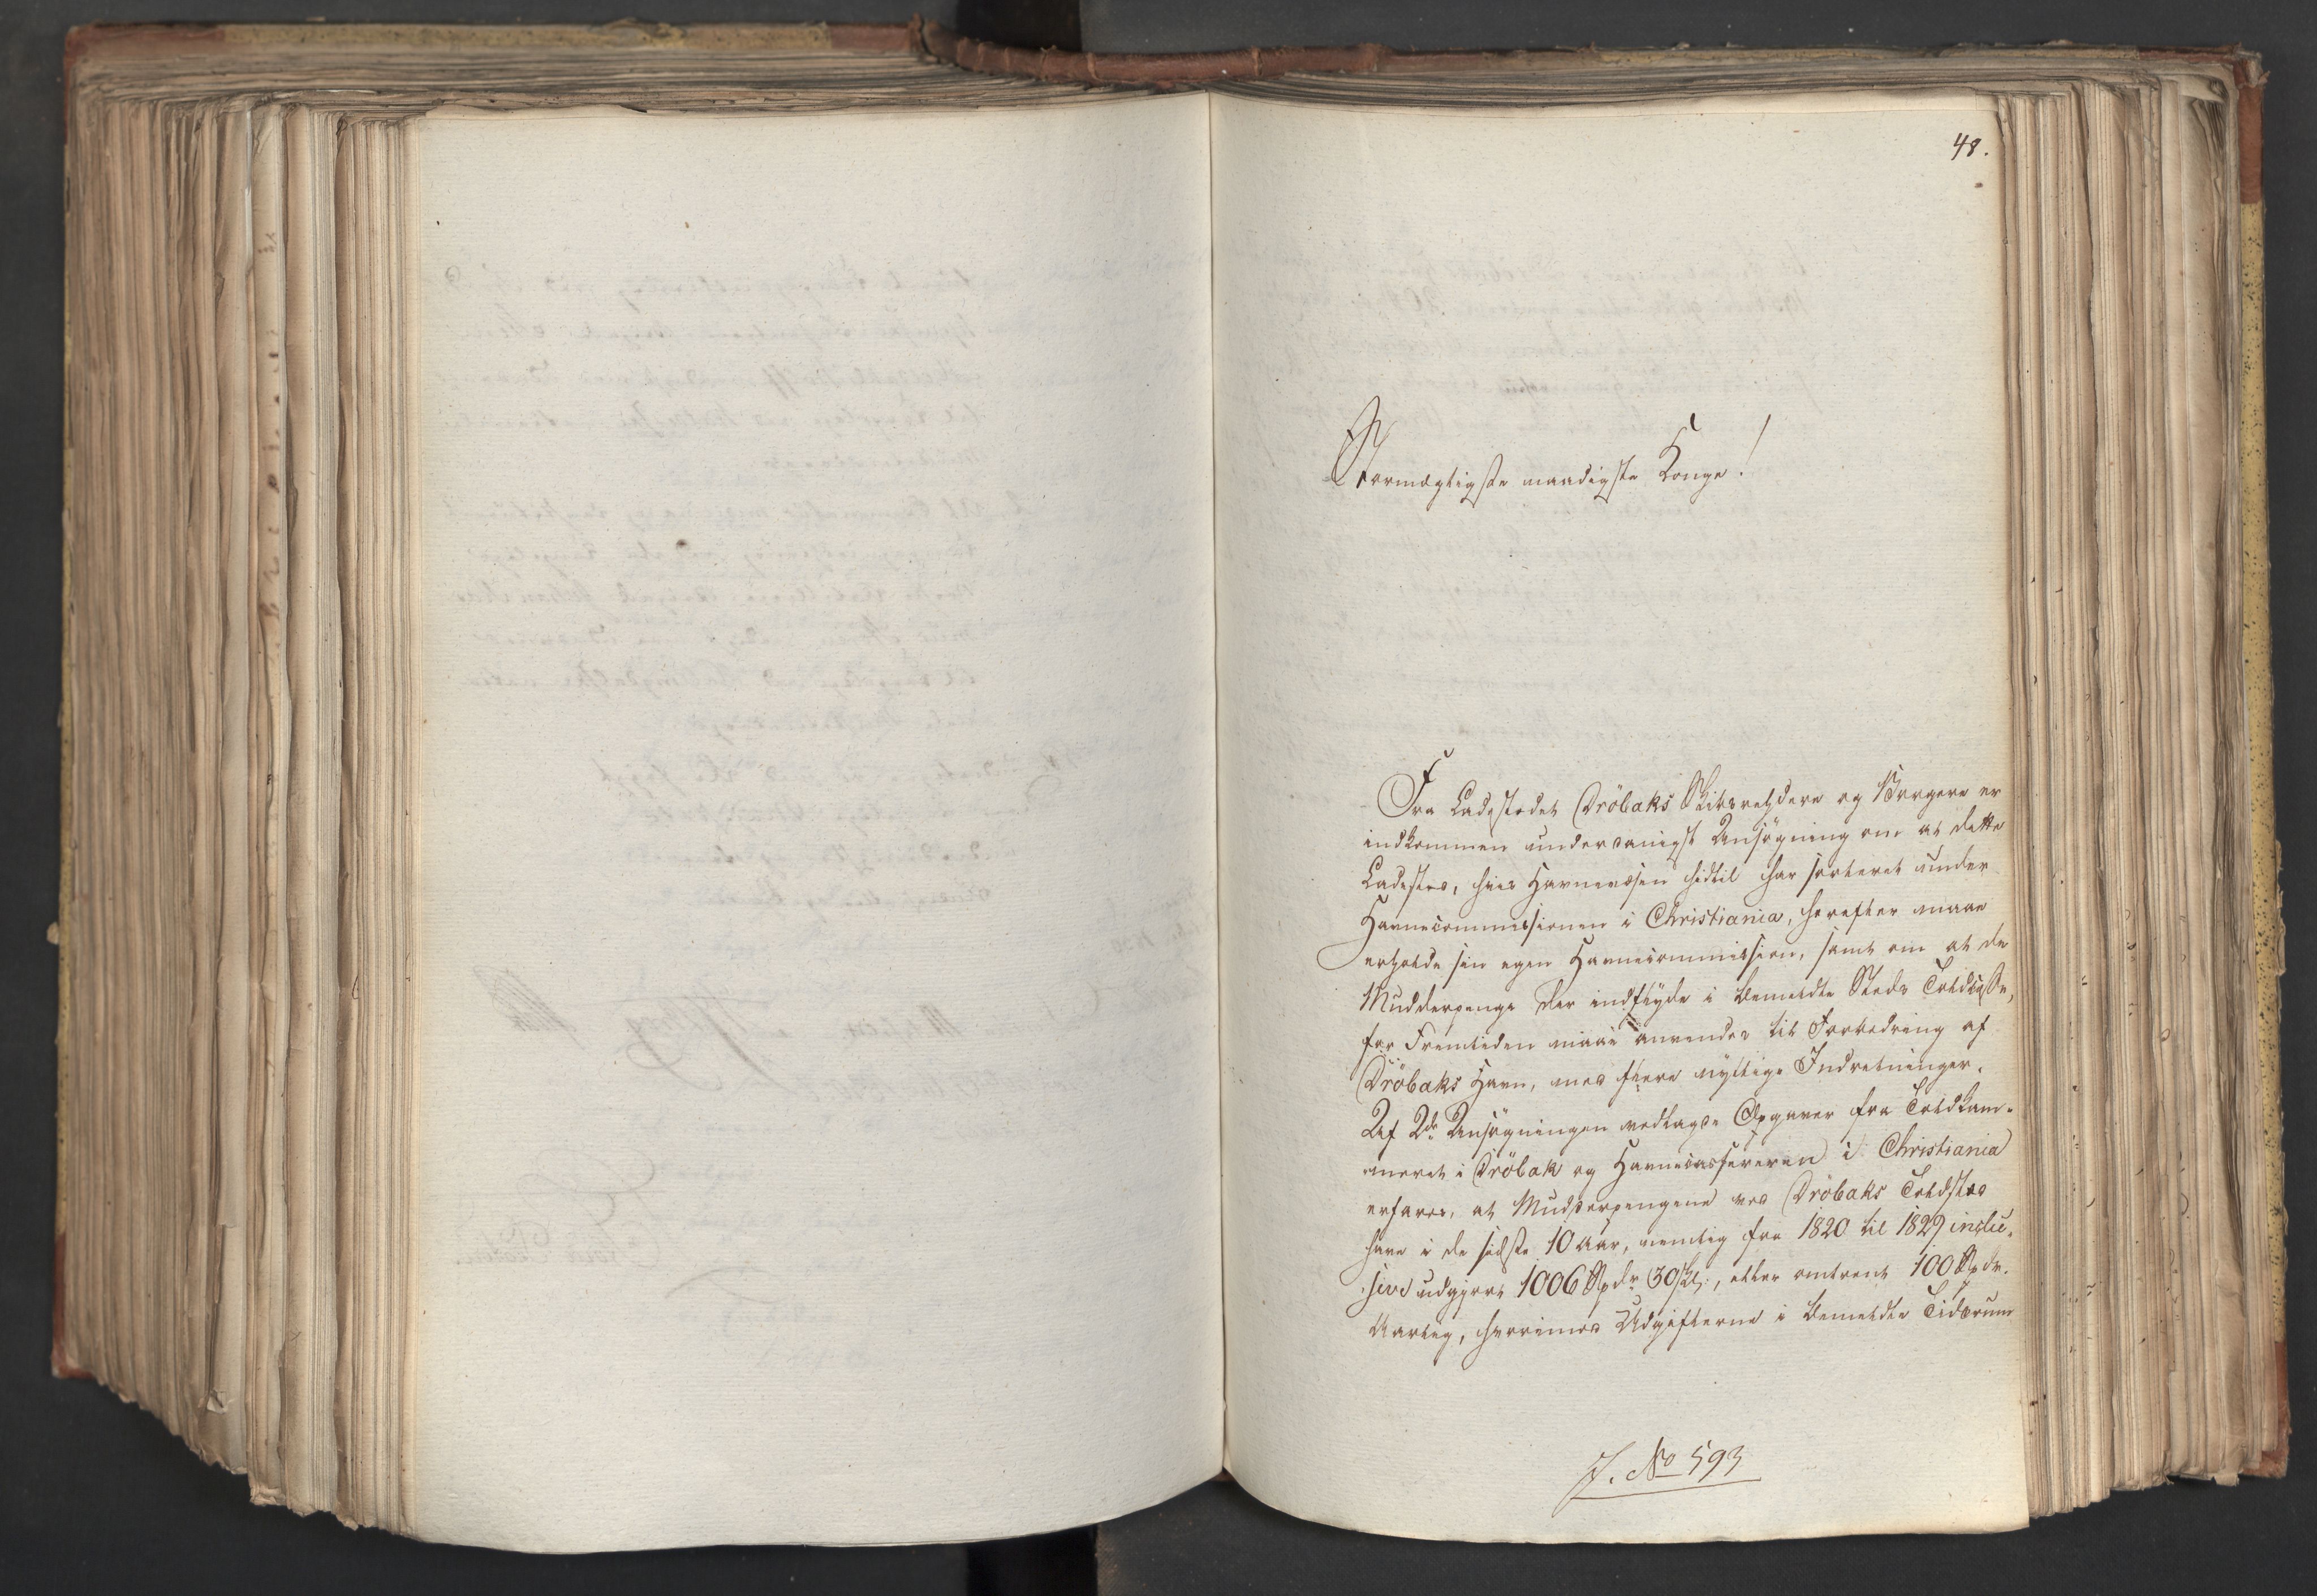 48.
Stormægtigste naadigste Konge!
Fra Ladestedet Dröbaks Skibsrehdere og Borgere er
indkommen underdanigst Ansøgning om at dette
Ladested, hvis Havnevæsen hidtil har sorteret under
Havnecommissionen i Christiania, herefter maae
erholde sin egen Havnecommission, samt om at de
Mudderpenge der indflyde i bemeldte Steds Toldcasse,
for Fremtiden maae anvendes til Forbedring af
Dröbaks Havn, med flere nyttige Indretninger.
Af de Ansøgningen vedlagde Opgaver fra Toldkam-
meret i Dröbak og Havnecassereren i Christiania
erfares, at Mudderpengene ved Dröbaks Toldsted
have i de sidste 10 Aar, nemlig fra 1820 til 1829 inclu-
sive udgjort 1006 Spdr 30 sk:, eller omtrent 100 Spdr.
Aarlig, hvorimod Udgifterne i bemeldte Tidsrum
J. No 593